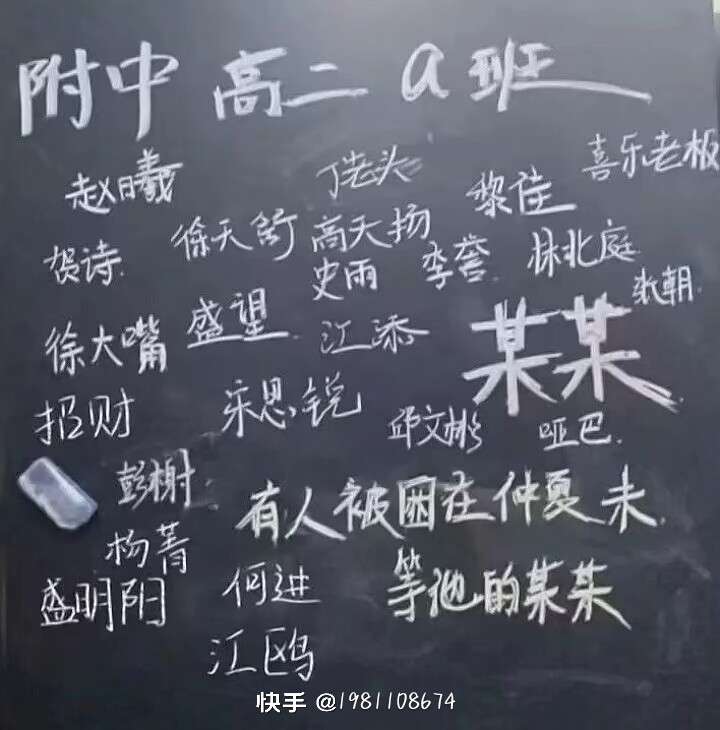 附中 高二 a班
喜乐老板
赵曦 丁老头 黎佳
贺诗 徐天舒 高天扬 李誉 林北庭
史雨 张朝
徐大嘴 盛望 江添 某某
招财 宋思锐 邱文彬 哑巴
彭榭 有人被困在仲夏末
杨菁
盛明阳 何进 等他的某某
江鸥
快手 @1981108674